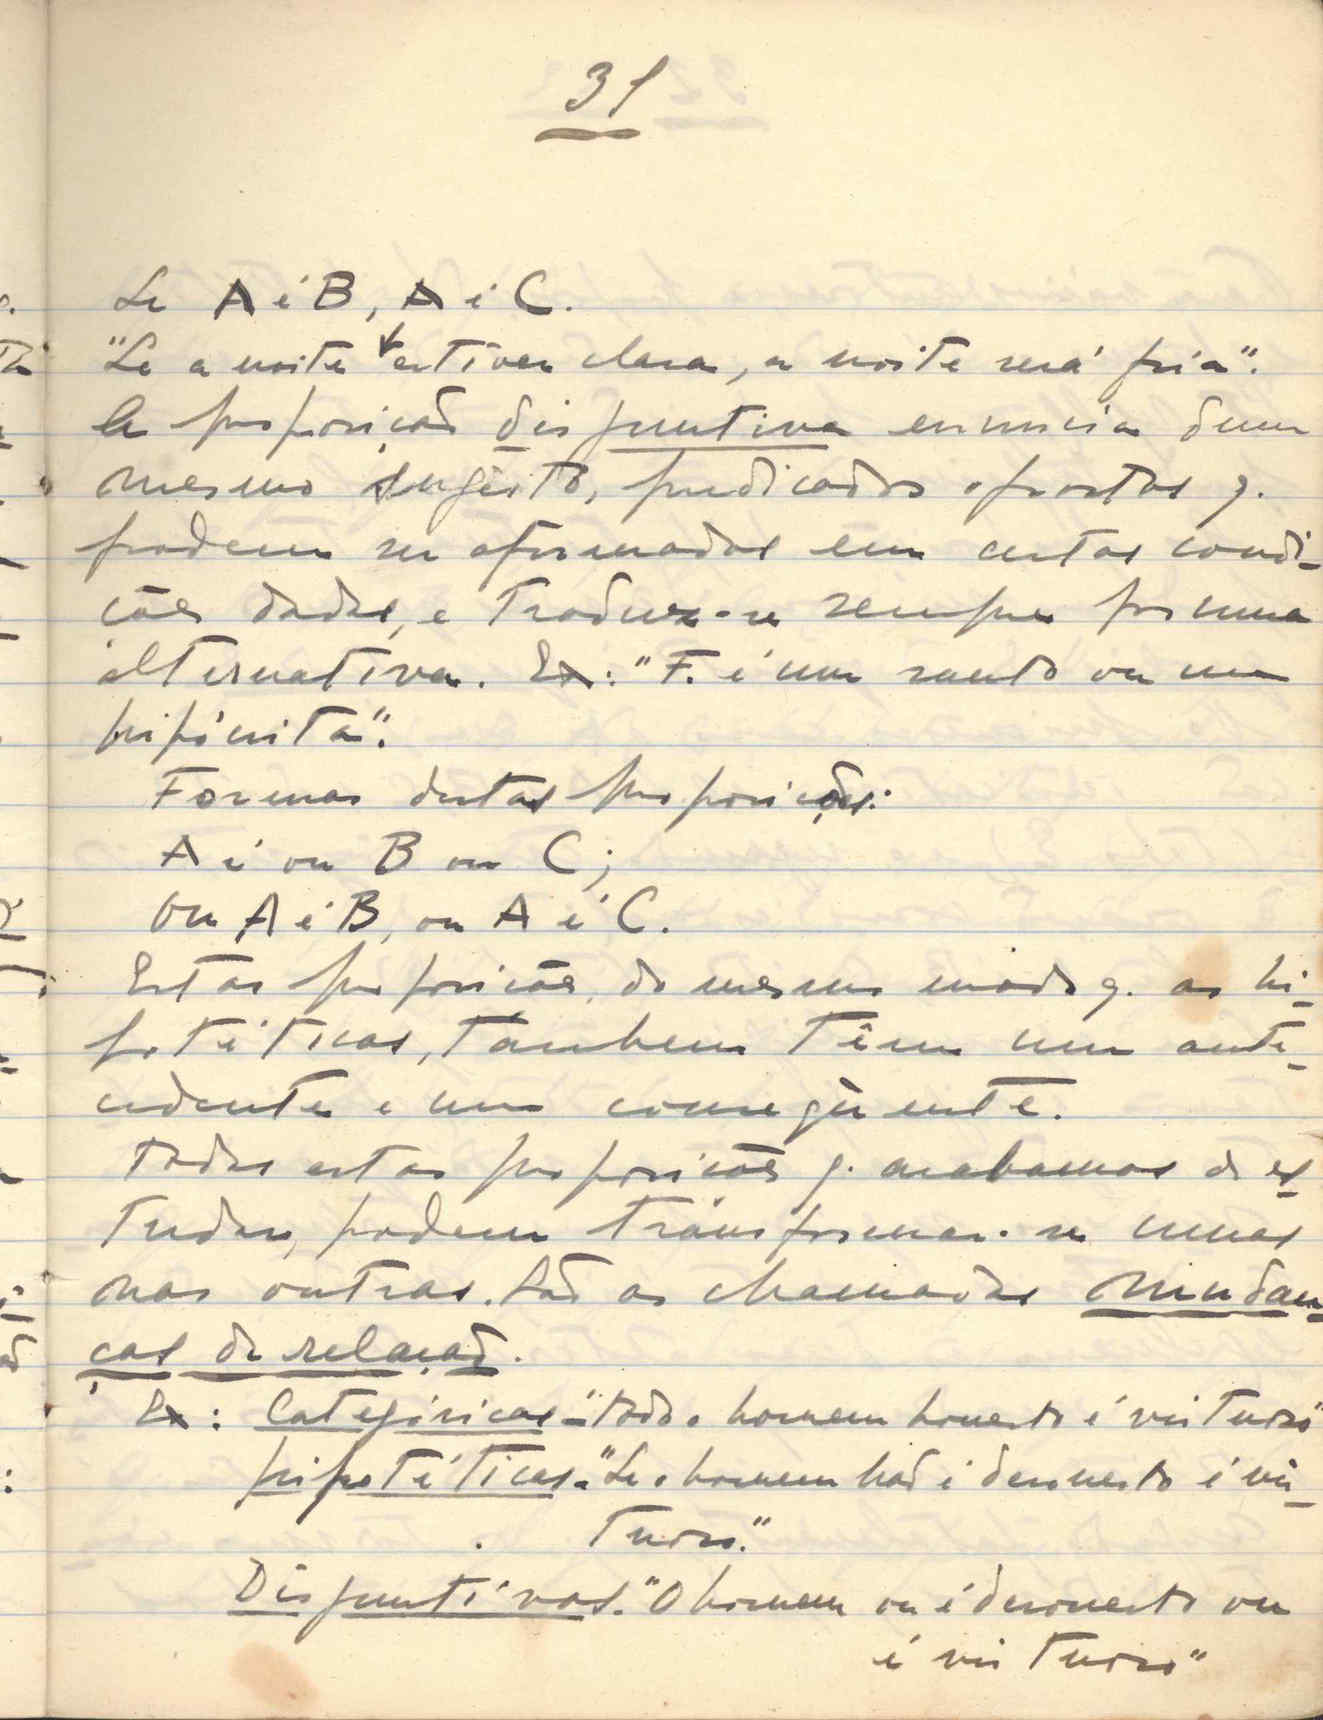 31
Se A é B, A é C.
"Se a noite estiver clara, a noite será fria".
A proposição disjuntiva enuncia dum
mesmo sugeito, predicados opostos q.
podem ser afirmados em certas condi-
ções dadas, e traduz-se sempre por uma
alternativa. Ex: "F. é um santo ou um
hipócrita".
Formas destas proposições:
A é ou B ou C;
Ou A é B, ou A é C.
Estas proposições, do mesmo modo q. as hi-
potéticas, tambem têm um ante-
cedente e um conseqùente.
Todas estas proposições q. acabamos de es-
tudar, podem transformar-se umas
nas outras. São as chamadas mudan-
ças de relação.
Ex: Categóricas - "Todo o homem honesto é virtuoso"
hipotéticas - "Se o homem não é desonesto é vir-
tuoso."
Disjuntivas. "O homem ou é desonesto ou
é virtuoso"